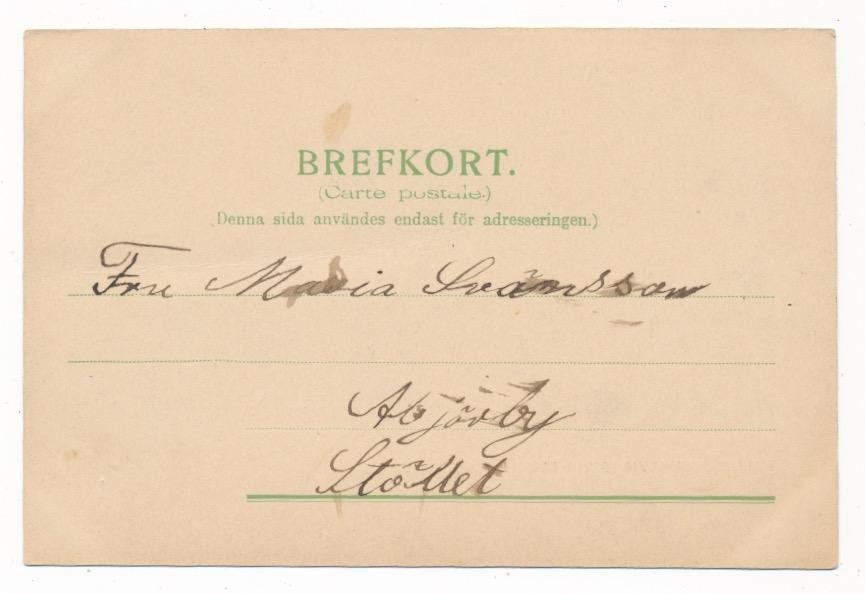 BREFKORT.
(Carte postale.)
(Denna sida användes endast för adresseringen.)
Fru Maria Svänsson
Stöllet